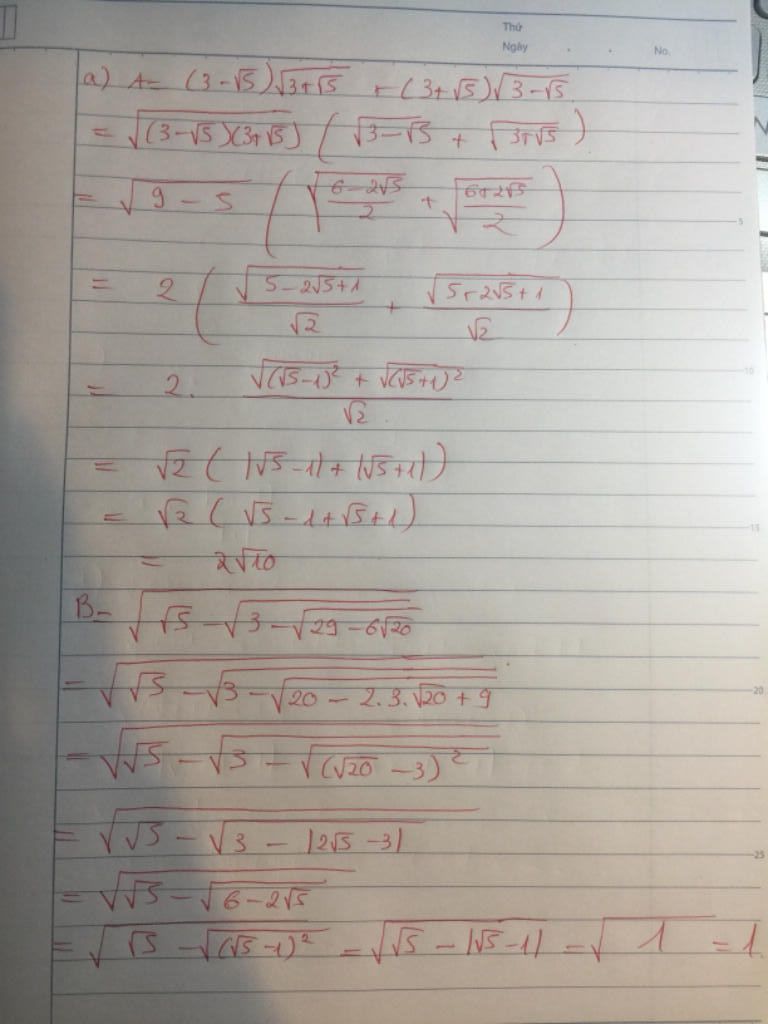 Thứ
Ngày . . No.
a) A= (3-√5)√(3+√5) + (3+√5)√(3-√5)
= √((3-√5)(3+√5)) ( √(3-√5) + √(3+√5) )
= √(9-5) ( √((6-2√5)/2) + √((6+2√5)/2) )
= 2 ( √(5-2√5+1)/√2 + √(5+2√5+1)/√2 )
= 2. (√((√5-1)²) + √((√5+1)²))/√2
= √2 ( |√5-1| + |√5+1| )
= √2 ( √5-1+√5+1 )
= 2√10
B= √(√5 - √(3 - √(29-6√20)))
= √(√5 - √(3 - √(20 - 2.3.√20 + 9)))
= √(√5 - √(3 - √((√20-3)²)))
= √(√5 - √(3 - |2√5-3|))
= √(√5 - √(6-2√5))
= √(√5 - √((√5-1)²)) = √(√5 - |√5-1|) = √1 = 1
5
10
15
20
25